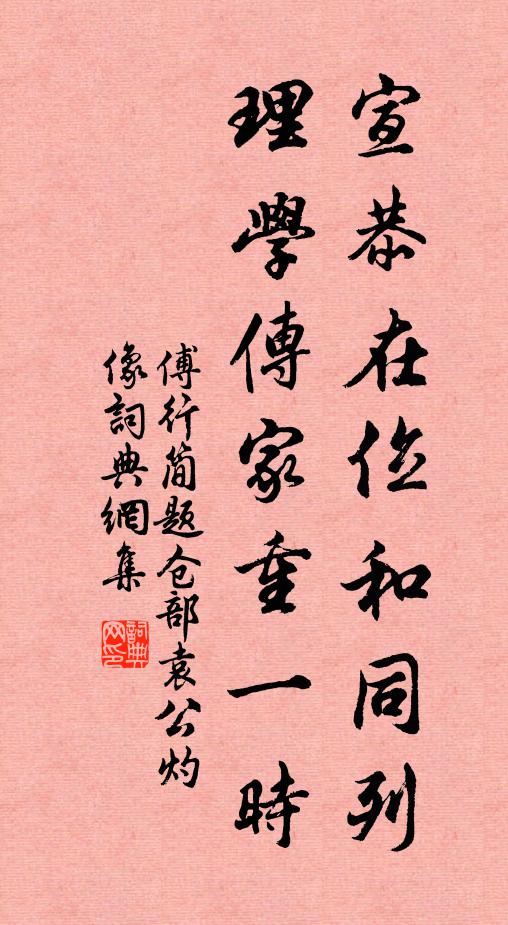 宣恭在位和同列
理學傳家重一時
傅行简題仓部袁公灼
像詞典網集
詞典网印